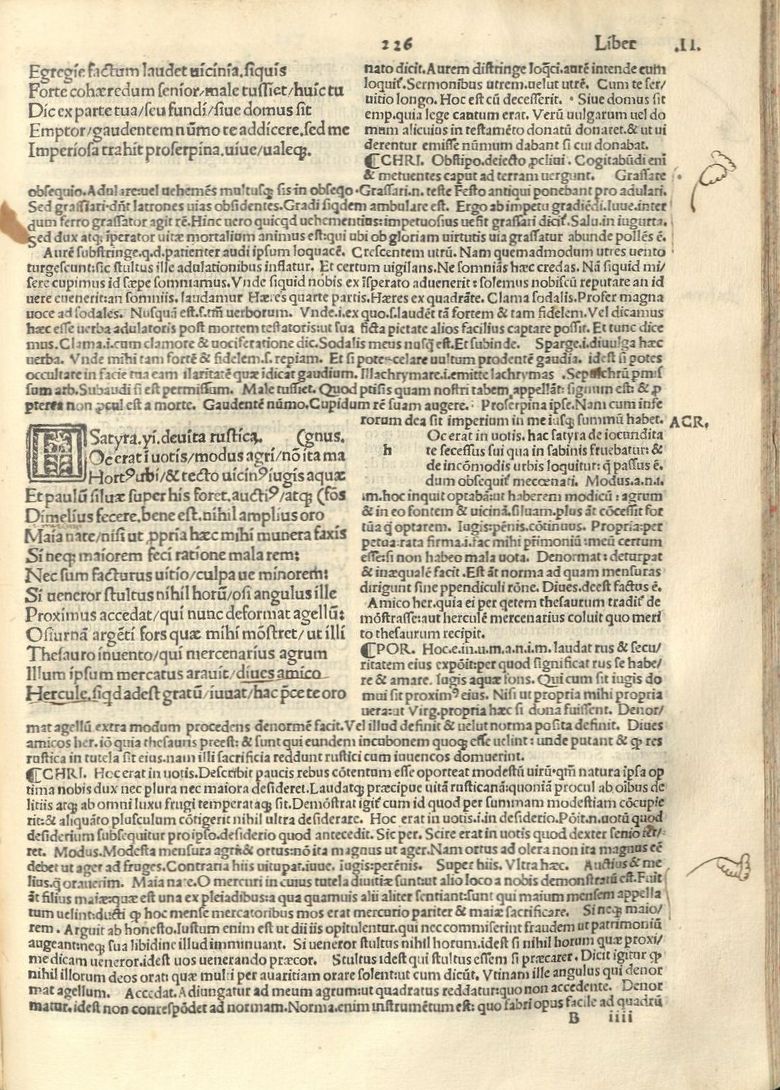 226 Liber .II.
Egregie factum laudet uicinia. siquis
Forte cohæredum senior/male tussiet/huic tu
Dic ex parte tua/seu fundi/siue domus sit
Emptor/gaudentem nũmo te addicere. sed me
Imperiosa trahit proserpina. uiue/ualeqꝫ.
nato dicit. Aurem distringe loq̃ci. aurẽ intende cum
uitio longo. Hoc est cũ decesserit. Siue domus sit
emp. quia lege cautum erat. Verũ uulgarum uel do
mum alicuius in testamẽto donatũ donaret. & ut ui
derentur emisse nũmum dabant si cui donabat.
& metuentes caput ad terram uergunt. Grassare
obsequio. Adulare: uel uehemẽs multusqꝫ sis in obseqo. Grassari. n. teste Festo antiqui ponebant pro adulari.
Sed grassari dñt latrones uias obsidentes. Gradi siqdem ambulare est. Ergo ab impetu gradiẽdi. Iuue. inter
Sed dux atqꝫ ĩperator uitæ mortalium animus est: qui ubi ob gloriam uirtutis uia grassatur abunde pollẽs ẽ.
Aurẽ substringe. q.d. patienter audi ipsum loquacẽ. Crescentem utrũ. Nam quemadmodum utres uento
turgescunt: sic stultus ille adulationibus inflatur. Et certum uigilans. Ne somniãs hæc credas. Nã siquid mi/
sere cupimus id sæpe somniamus. Vnde siquid nobis ex ĩsperato aduenerit: solemus nobiscũ reputare an id
uere euenerit: an somniis. laudamur Hæres quarte partis. Hæres ex quadrãte. Clama sodalis. Profer magna
uoce ad sodales. Nusquã est. s. tm̃ uerborum. Vnde. i. ex quo. s. laudẽt tã fortem & tam fidelem. Vel dicamus
hæc esse uerba adulatoris post mortem testatoris: ut sua ficta pietate alios facilius captare possit. Et tunc dice
mus. Clama. i. cum clamore & uociferatione dic. Sodalis meus nusq̃ est. Et subinde. Sparge. i. diuulga hæc
uerba. Vnde mihi tam fortẽ & fidelem. s. repiam. Et si potes celare uultum prodentẽ gaudia. idest si potes
occultare in facie tua eam ilaritatẽ quæ idicat gaudium. Illachrymare. i. emitte lachrymas. Sepulchrũ pmis
sum arb. Subaudi si est permissum. Male tussiet. Quod ptisis quam nostri tabem appellãt: signum est: & ꝓ
pterea non ꝓcul est a morte. Gaudentẽ nũmo. Cupidum rẽ suam augere. Proserpina ipse. Nam cum infe
rorum dea sit imperium in me iusqꝫ summũ habet.
ACR.
Satyra. yi. deuita rustica. (gnus.
HOc erat ĩ uotis/modus agri/nõ ita ma
Hortꝰ ubi/& tecto uicinꝰ iugis aquæ
Et paulũ siluæ super his foret. auctiꝰ/atqꝫ (fõs
Dimelius fecere. bene est. nihil amplius oro
Maia nate/nisi ut ꝓpria hæc mihi munera faxis
Si neqꝫ maiorem feci ratione mala rem:
Nec sum facturus uitio/culpa ue minorem:
Si ueneror stultus nihil horũ/osi angulus ille
Proximus accedat/qui nunc deformat agellũ:
Osiurnã argẽti fors quæ mihi mõstret/ut illi
Thesauro inuento/qui mercenarius agrum
Illum ipsum mercatus arauit/diues amico
Hercule. siqd adest gratũ/iuuat/hac p̃ce te oro
h
Oc erat in uotis. hac satyra de iocundita
te secessus sui qua in sabinis fruebatur: &
de incõmodis urbis loquitur: q̃ passus ẽ.
dum obsequit̃ mecœnati. Modus. a. n. i.
m. hoc inquit optabã: ut haberem modicũ: agrum
& in eo fontem & uicinã siluam. plus ãt cõcessit for
tũa q̃ optarem. Iugis: p̃enis. cõtinuus. Propria: per
petua: rata firma. i. fac mihi p̃rimoniũ: meũ certum
esse: si non habeo mala uota. Denormat: deturpat
& inæqualẽ facit. Est ãt norma ad quam mensuras
dirigunt sine ppendiculi rõne. Diues. deest factus ẽ.
Amico her. quia ei per qetem thesaurum tradit̃ de
mõstrasse: aut herculẽ mercenarius coluit quo meri
to thesaurum recipit.
¶POR. Hoc. e. in. u. m. a. n. i. m. laudat rus & secu/
ritatem eius expõit: per quod significat rus se habe/
re & amare. Iugis aquæ fons. Qui cum sit iugis do
mui sit proximꝰ eius. Nisi ut propria mihi propria
uera: ut Virg. propria hæc si dona fuissent. Denor/
mat agellũ extra modum procedens denormẽ facit. Vel illud definit & uelut norma posita definit. Diues
amicos her. iõ quia thesauris preest: & sunt qui eundem incubonem quoqꝫ esse uelint: unde putant & ꝙ res
rustica in tutela sit eius. nam illi sacrificia reddunt rustici cum iuuencos domuerint.
¶CHRI. Hoc erat in uotis. Describit paucis rebus cõtentum esse oporteat modestũ uirũ. qm̃ natura ipsa op
tima nobis dux nec plura nec maiora desideret. Laudatqꝫ præcipue uitã rusticanã: quoniã procul ab oĩbus de
litiis atqꝫ ab omni luxu frugi temperataqꝫ sit. Demõstrat igit̃ cum id quod per summam modestiam cõcupie
rit: & aliquãto plusculum cõtigerit nihil ultra desiderare. Hoc erat in uotis. i. in desiderio. Põit. n. uotũ quod
desiderium subsequitur pro ipso. desiderio quod antecedit. Sic per. Scire erat in uotis quod dexter senio fer/
ret. Modus. Modesta mensura agri: & ortus: nõ ita magnus ut ager. Nam ortus ad olera non ita magnus eẽ
debet ut ager ad fruges. Contraria hiis uitupat. iuue. iugis: perẽnis. Super hiis. Vltra hæc. Auctius & me
lius. q̃ orauerim. Maia nate. O mercuri in cuius tutela diuitiæ sunt: ut alio loco a nobis demonstratũ est. Fuit
ãt filius maiæ: quæ est una ex pleiadibus: a qua quamuis alii aliter sentiant: sunt qui maium mensem appella
tum uelint: ducti ꝙ hoc mense mercatoribus mos erat mercurio pariter & maiæ sacrificare. Si neqꝫ maio/
rem. Arguit ab honesto. Iustum enim est ut dii iis opitulentur. qui nec commiserint fraudem ut patrimoniũ
augeant: neqꝫ sua libidine illud imminuant. Si ueneror stultus nihil horum. idest si nihil horum quæ proxi/
me dicam ueneror. idest uos uenerando præcor. Stultus idest qui stultus essem si præcarer. Dicit igitur ꝙ
nihil illorum deos orati quæ multi per auaritiam orare solent: ut cum dicũt. Vtinam ille angulus qui denor
mat agellum. Accedat. Adiungatur ad meum agrum: ut quadratus reddatur: quo non accedente. Denor
matur. idest non correspõdet ad normam. Norma. enim instrumẽtum est: quo fabri opus facile ad quadrũ
B iiii